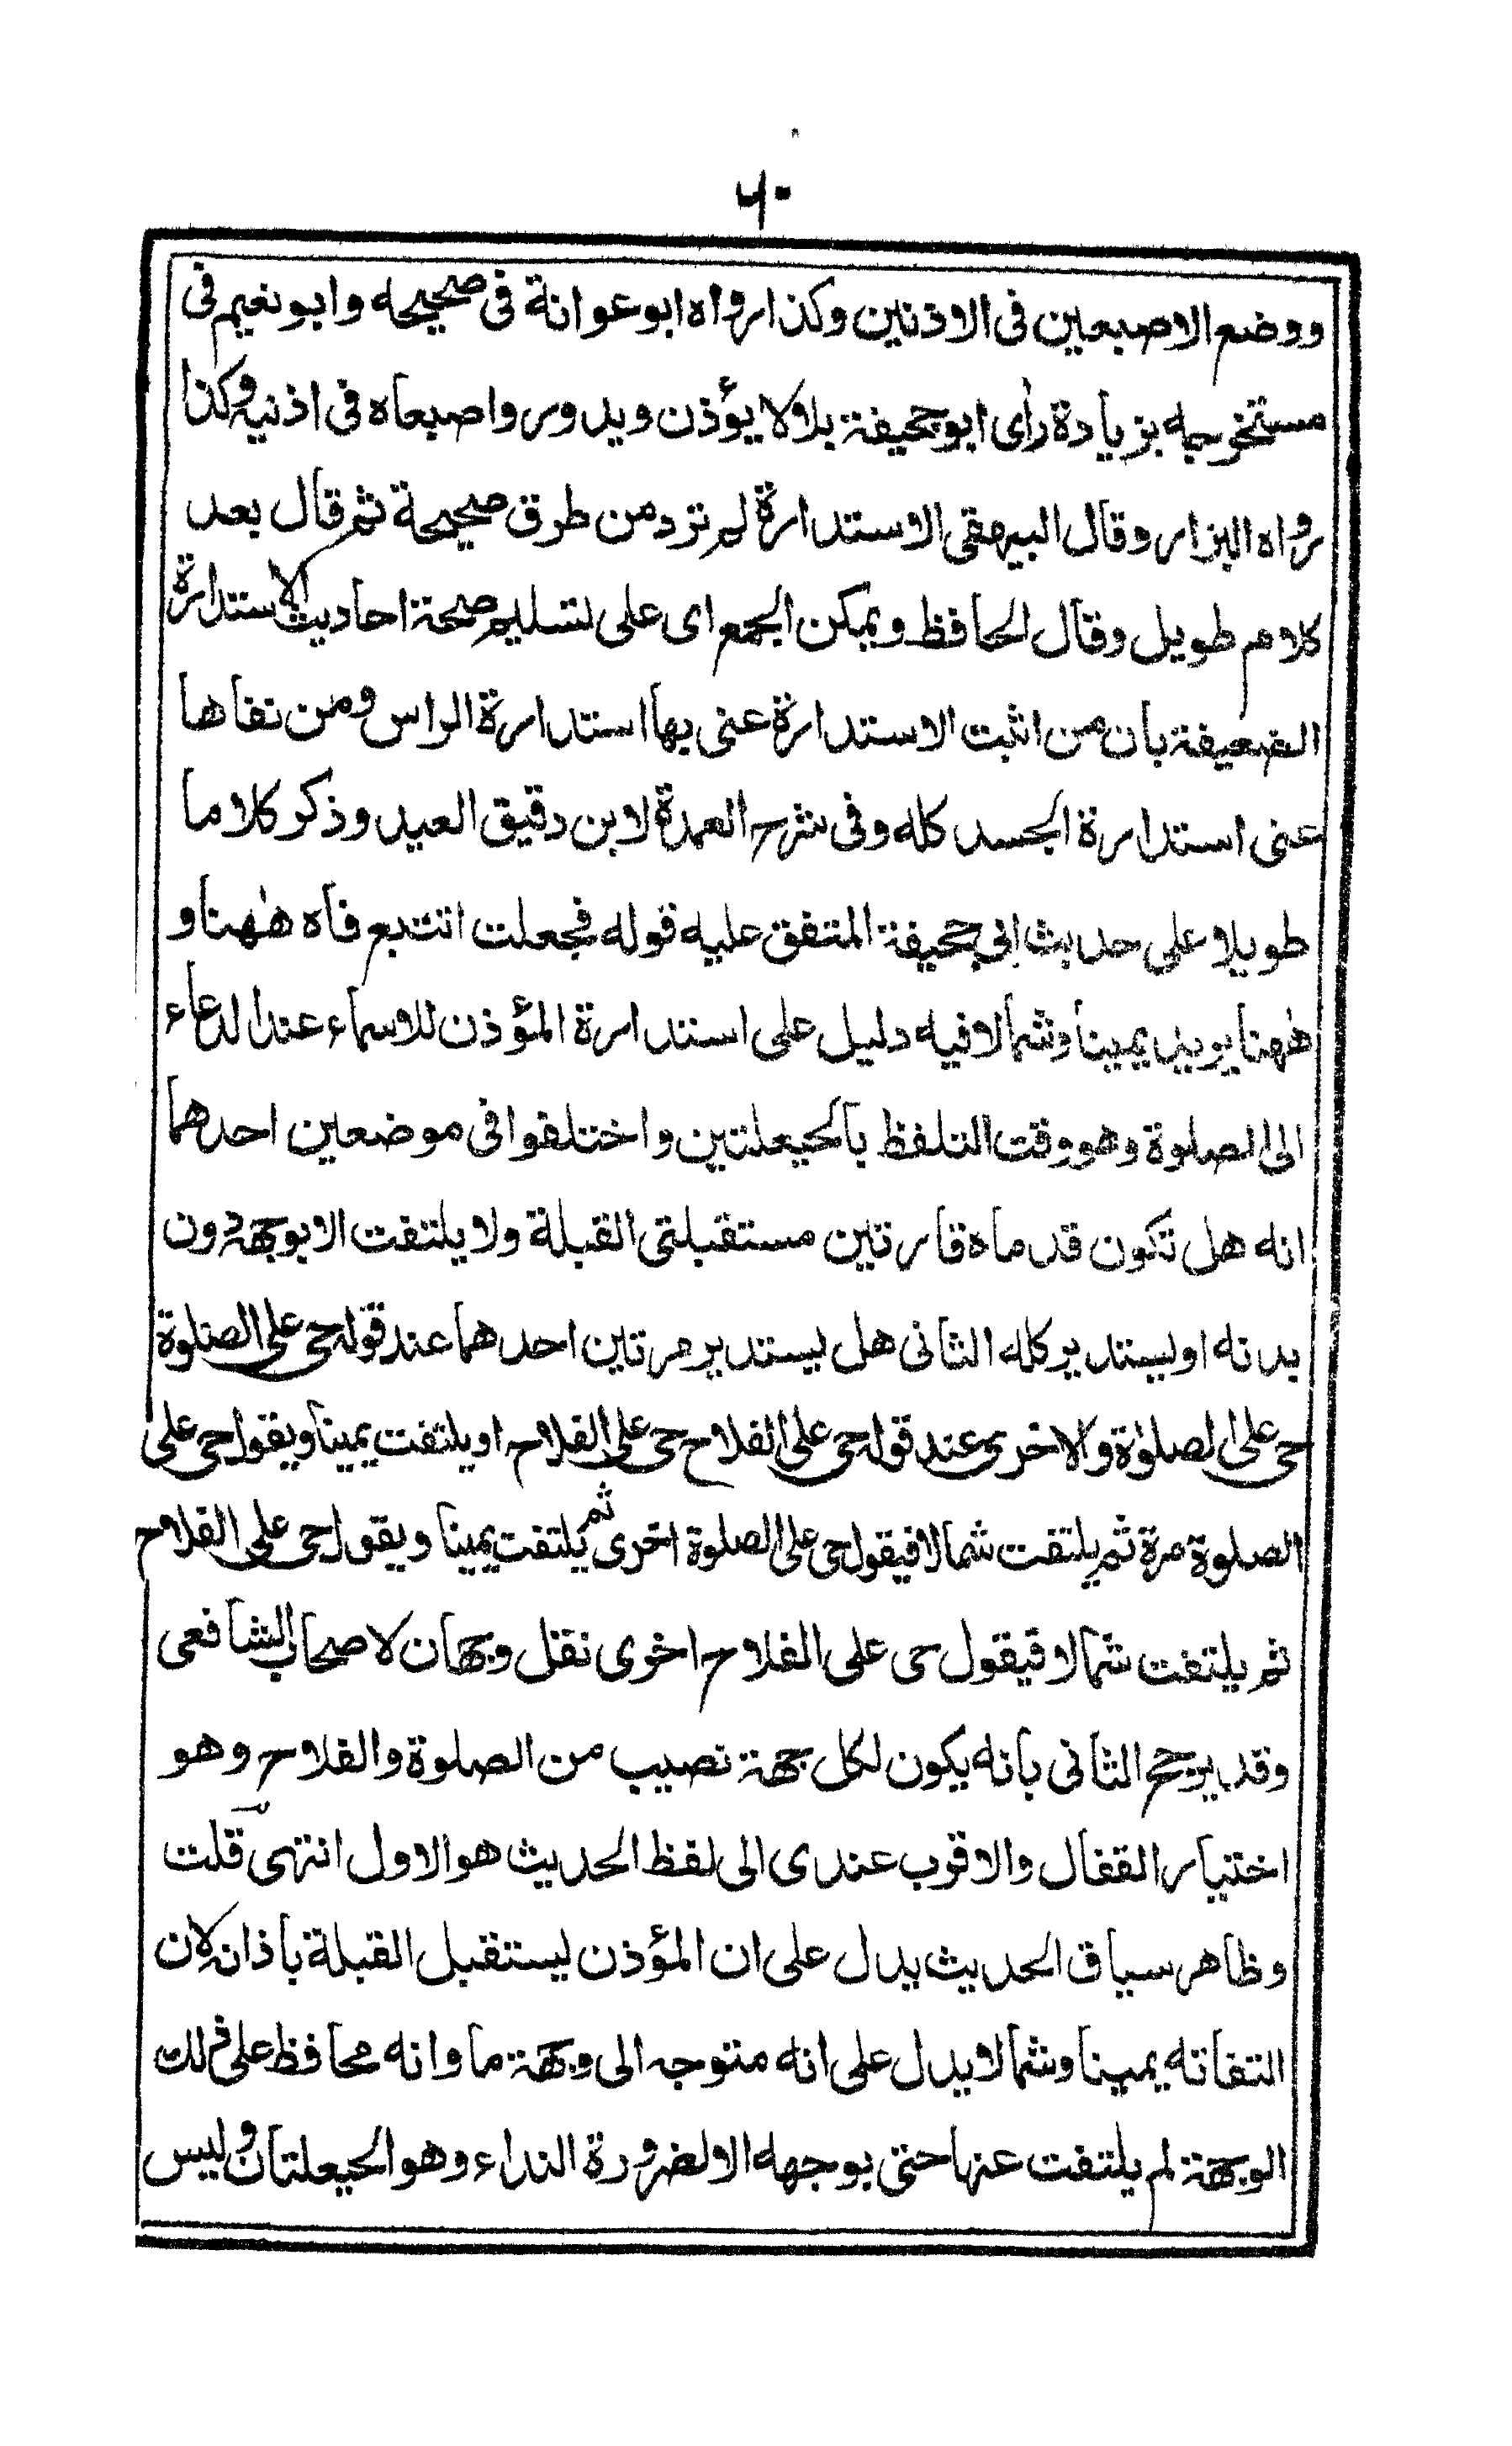 ٦٠
ووضع الاصبعين فى الاذنين وكذا رواه ابو عوانة فى صحيحه وابو نعيم فى
مستخرجه بزيادة رأى ابو جحيفة بلالا يؤذن ويدور واصبعاه فى اذنيه وكذا
رواه البزار وقال البيهقى الاستدارة لم ترد من طرق صحيحة ثم قال بعد
كلام طويل وقال الحافظ ويمكن الجمع اى على تسليم صحة احاديث الاستدارة
الضعيفة بان من اثبت الاستدارة عنى بها استدارة الراس ومن نفاها
عنى استدارة الجسد كله وفى شرح العمدة لابن دقيق العيد وذكر كلاما
طويلا على حديث ابى جحيفة المتفق عليه قوله فجعلت اتتبع فاه ههنا و
ههنا يريد يمينا وشمالا فيه دليل على استدارة المؤذن للاسماء عند الدعاء
الى الصلوة وهو وقت التلفظ بالحيعلتين واختلفوا فى موضعين احدهما
انه هل تكون قدماه قارتين مستقبلتى القبلة ولا يلتفت الا بوجهه دون
بدنه او يستدير كله الثانى هل يستدير مرتين احدهما عند قوله حى على الصلوة
حى على الصلوٰة والاخرى عند قوله حى على الفلاح حى على الفلاح او يلتفت يمينا ويقول حى على
الصلوة مرة ثم يلتفت شمالا فيقول حى على الصلوة اخرى ثم يلتفت يمينا ويقول حى على الفلاح
ثم يلتفت شمالا فيقول حى على الفلاح اخرى نقل وجهان لاصحاب الشافعى
وقد يرجح الثانى بانه يكون لكل جهة نصيب من الصلوة والفلاح وهو
اختيار القفال والاقرب عندى الى لفظ الحديث هو الاول انتهى قلت
وظاهر سياق الحديث يدل على ان المؤذن يستقبل القبلة باذانه لان
التفاته يمينا وشمالا يدل على انه متوجه الى وجهة ما وانه محافظ على ذلك
الوجهة لم يلتفت عنها حتى بوجهه الا لضرورة النداء وهو الحيعلتان وليس